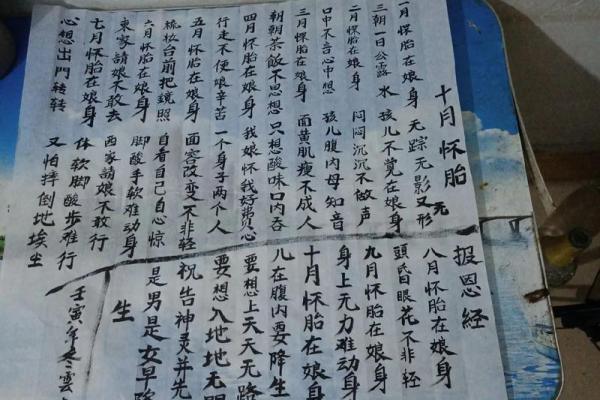 十月怀胎
一月怀胎在娘身 无踪无影又无形
三朝一日公露水 孩儿不觉在娘身
二月怀胎在娘身 闷闷沉沉不做声
口中不言心中想 孩儿腹内母知音
三月怀胎在娘身 面黄肌瘦不成人
朝朝茶飯不思想 只想酸味口内吞
四月怀胎在娘身 我娘怀我好費心
行走不便娘辛苦 一个身子两个人
五月怀胎在娘身 面容改变不非轻
梳妆台前把鏡照 自看自己自心惊
六月怀胎在娘身 脚酸手软难动身
東家請娘不敢去 西家請娘不敢行
七月怀胎在娘身 体软脚酸步难行
心想出門转转 又怕摔倒地埃尘
报恩經
八月怀胎在娘身
頭昏眼花不非轻
九月怀胎在娘身
身上无力难动身
十月怀胎在娘身
儿在腹内要降生
要想上天天无路
要想入地地无門
祝告神灵并先
是男是女早降
生
壬寅年冬雲